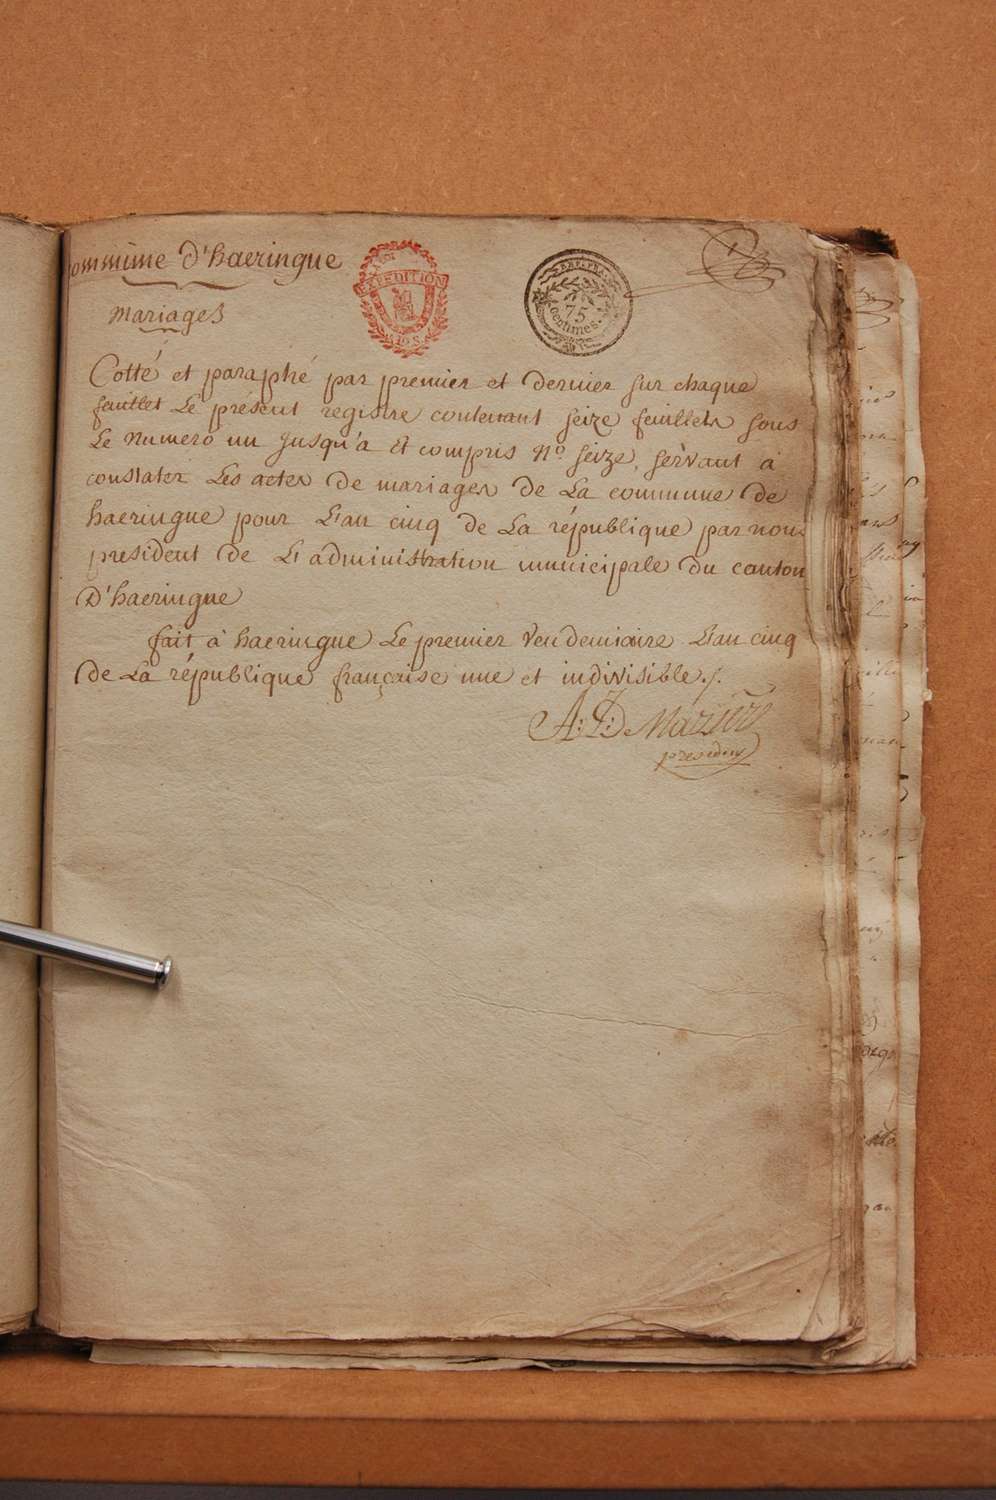 ommune d'haeringue
mariages
EXPEDITION
10 S.
75
centimes.
Cotté et paraphé par premier et dernier sur chaque
feuillet Le présent registre contenant seize feuillets sous
Le numero un jusqu'a et compris N.º seize, servant à
constater Les actes de mariages de La commune de
haeringue pour L'an cinq de La république par nous
president de L'administration municipale du canton
D'haeringue
fait à haeringue Le premier vendemiaire L'an cinq
de La république française une et indivisible./.
president